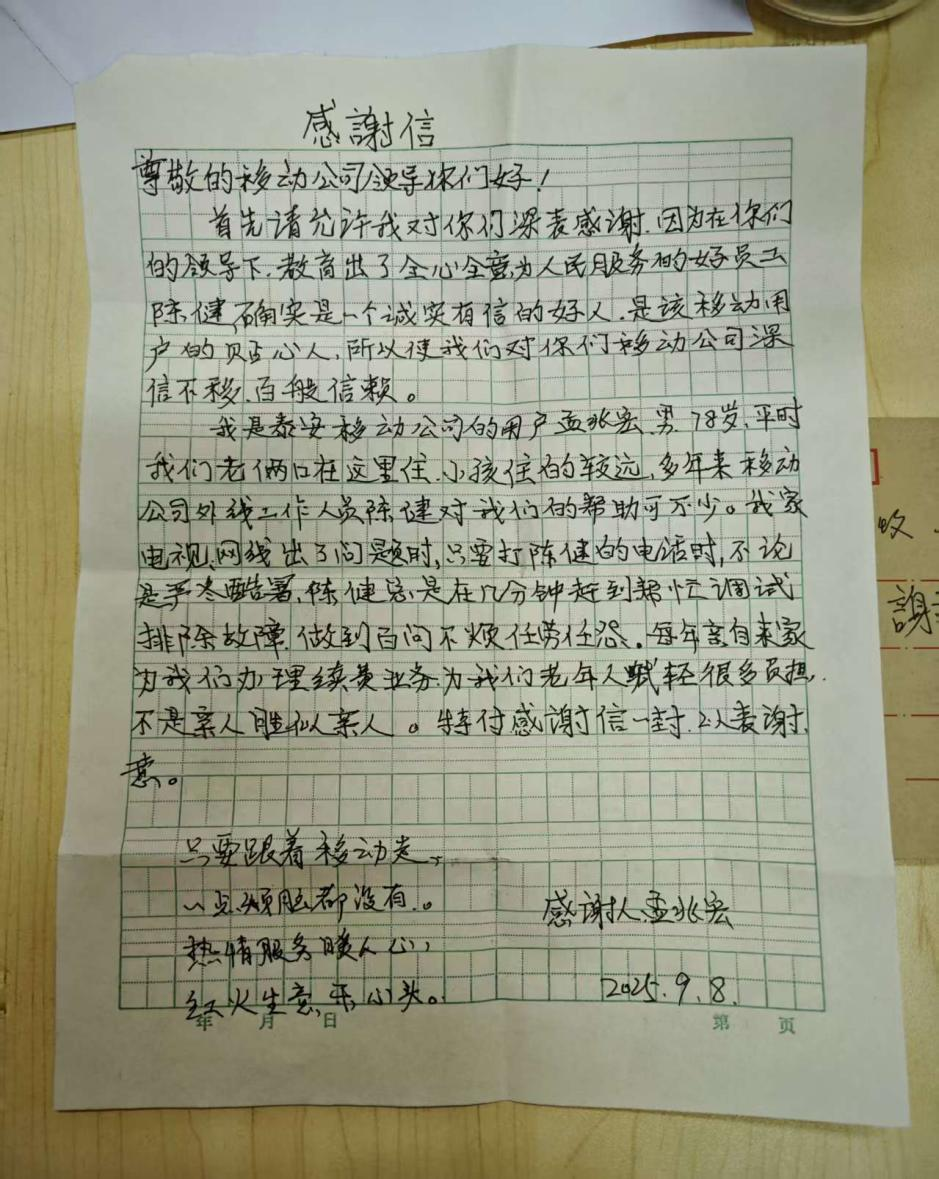 感謝信
尊敬的移动公司领导你们好！
首先请允许我对你们深表感谢.因为在你们
的领导下.教育出了全心全意为人民服务的好员工
陈健,确实是一个诚实有信的好人.是该移动用
户的贴心人,所以使我们对你们移动公司深
信不移.百般信赖。
我是泰安移动公司的用户孟兆宏.男.78岁,平时
我们老俩口在这里住.小孩住的较远,多年来移动
公司外线工作人员陈健对我们的帮助可不少。我家
电视.网线出了问题时,只要打陈健的电话时,不论
是严冬酷署,陈健总是在几分钟赶到帮忙调试
排除故障.做到百问不烦任劳任怨。每年亲自来家
为我们办理续费业务.为我们老年人减轻很多负担.
不是亲人胜似亲人。特付感謝信一封.以表谢
意。
只要跟着移动走,
一点烦脑都没有。
热情服务暖人心,
红火生意乐心头。
感谢人.孟兆宏
2025.9.8.
年 月 日
第 页
謝